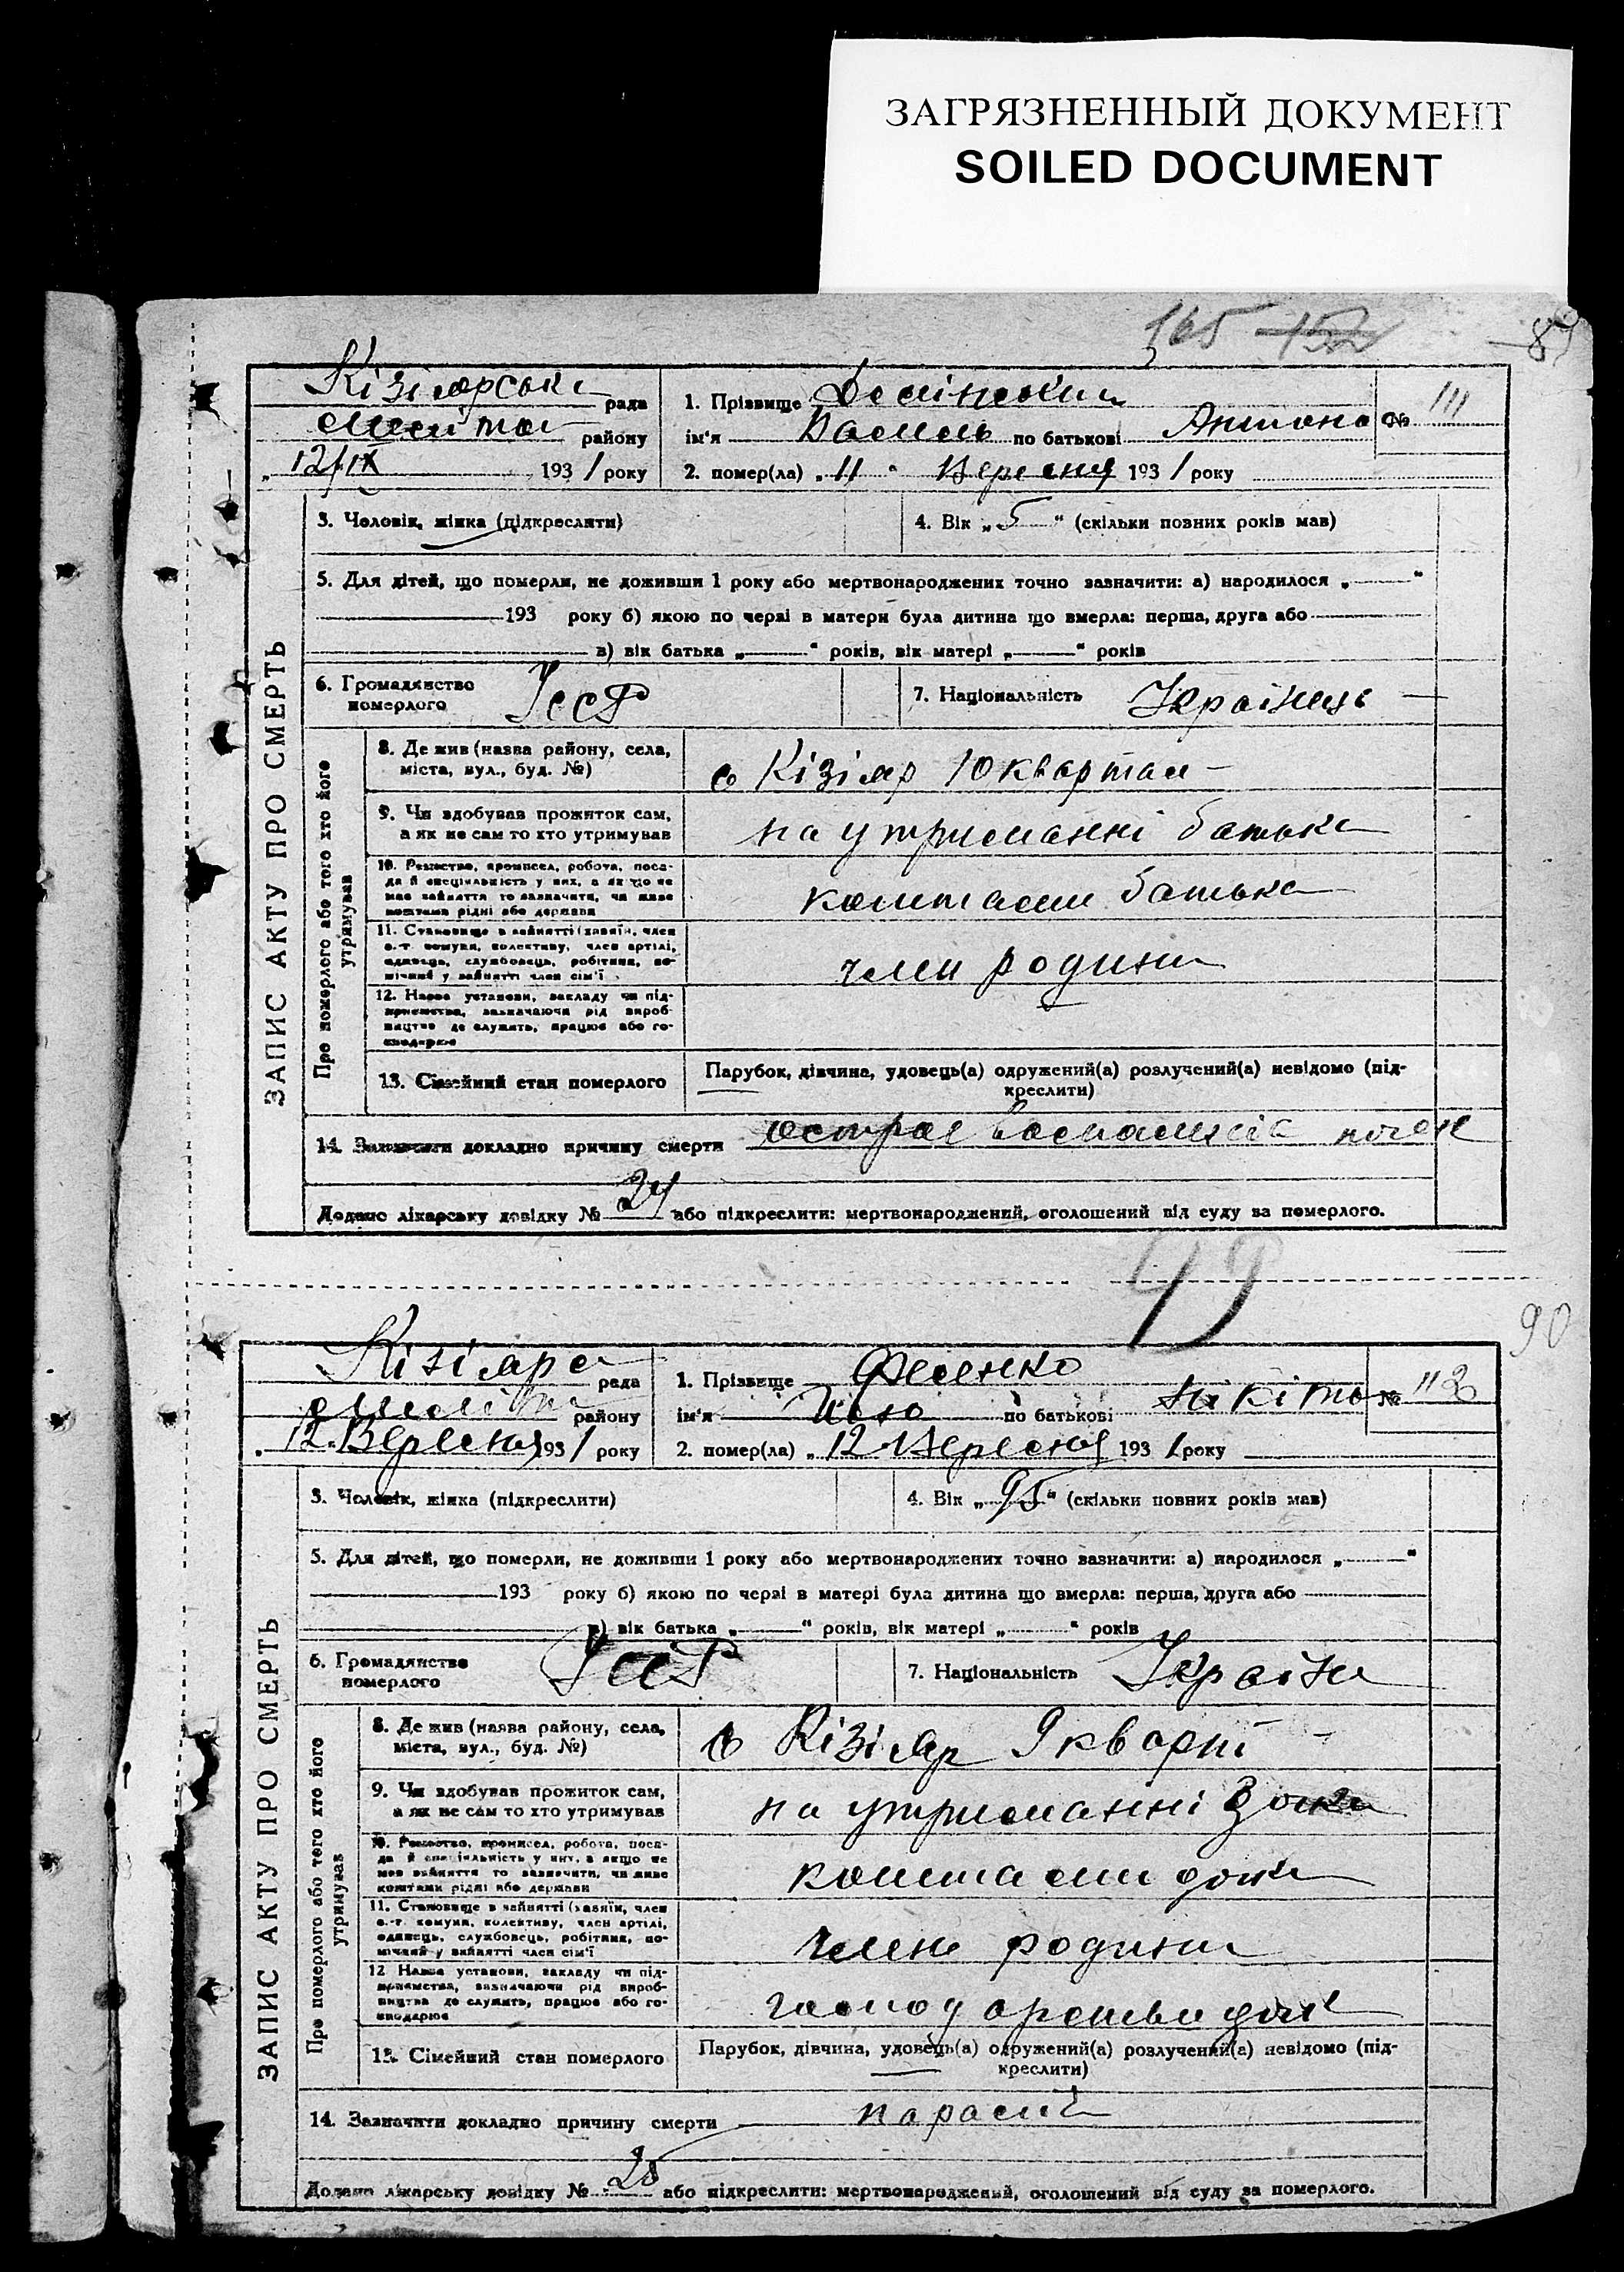 ЗАГРЯЗНЕННЫЙ ДОКУМЕНТ
SOILED DOCUMENT
165
89
Кізіярська рада
району
„ 12/IX 1931 року
1. Прізвище
ім'я Василь по батькові Антона
№ 111
2. помер(ла) „ 11 " Вересня 1931 року
3. Чоловік, жінка (підкреслити)
4. Вік „ 5 " (скільки повних років мав)
5. Для дітей, що померли, не доживши 1 року або мертвонароджених точно зазначити: а) народилося „ "
193 року б) якою по черзі в матери була дитина що вмерла: перша, друга або
в) вік батька „ " років, вік матері „ " років
6. Громадянство померлого УССР
7. Національність Українець
ЗАПИС АКТУ ПРО СМЕРТЬ
Про померлого або того хто його утримував
8. Де жив (назва району, села, міста, вул., буд. №)
с Кізіяр 10 квартал
9. Чи здобував прожиток сам, а як не сам то хто утримував
на утриманні батька
10. Ремество, промисел, робота, поса-
да й спеціяльність у них, а якщо не
має зайняття то зазначити, чи живе
коштами рідні або держави
коштами батька
11. Становище в зайнятті (хазяїн, член
с.-г. комуни, колективу, член артілі,
одинець, службовець, робітник, по-
мічний у зайнятті член сім'ї
член родини
12. Назва установи, закладу чи під-
приємства, зазначаючи рід вироб-
ництва де служить, працює або го-
сподарює
13. Сімейний стан померлого
Парубок, дівчина, удовець(а) одружений(а) розлучений(а) невідомо (під-
креслити)
14. Зазначити докладно причину смерти острое воспаленіе почек
Додано лікарську довідку № 24 або підкреслити: мертвонароджений, оголошений від суду за померлого.
49
90
Кізіяра рада
району
„ 12 Вересня 1931 року
1. Прізвище Фесенко
ім'я по батькові Нікіто
№
2. помер(ла) „ 12 Вересня 1931 року
3. Чоловік, жінка (підкреслити)
4. Вік „ 95 " (скільки повних років мав)
5. Для дітей, що померли, не доживши 1 року або мертвонароджених точно зазначити: а) народилося „ "
193 року б) якою по черзі в матері була дитина що вмерла: перша, друга або
в) вік батька „ " років, вік матері „ " років
6. Громадянство померлого УССР
7. Національність Україн
ЗАПИС АКТУ ПРО СМЕРТЬ
Про померлого або того хто його утримував
8. Де жив (назва району, села, міста, вул., буд. №)
с Кізіяр 9 кварт
9. Чи здобував прожиток сам, а як не сам то хто утримував
на утриманні дочки
10. Ремество, промисел, робота, поса-
да й спеціяльність у них, а якщо не
має зайняття то зазначити, чи живе
коштами рідні або держави
коштами дочки
11. Становище в зайнятті (хазяїн, член
с.-г. комуни, колективу, член артілі,
одинець, службовець, робітник, по-
мічний у зайнятті член сім'ї
член родини
12. Назва установи, закладу чи під-
приємства, зазначаючи рід вироб-
ництва де служить, працює або го-
сподарює
13. Сімейний стан померлого
Парубок, дівчина, удовець(а) одружений(а) розлучений(а) невідомо (під-
креслити)
14. Зазначити докладно причину смерти
Додано лікарську довідку № 25 або підкреслити: мертвонароджений, оголошений від суду за померлого.